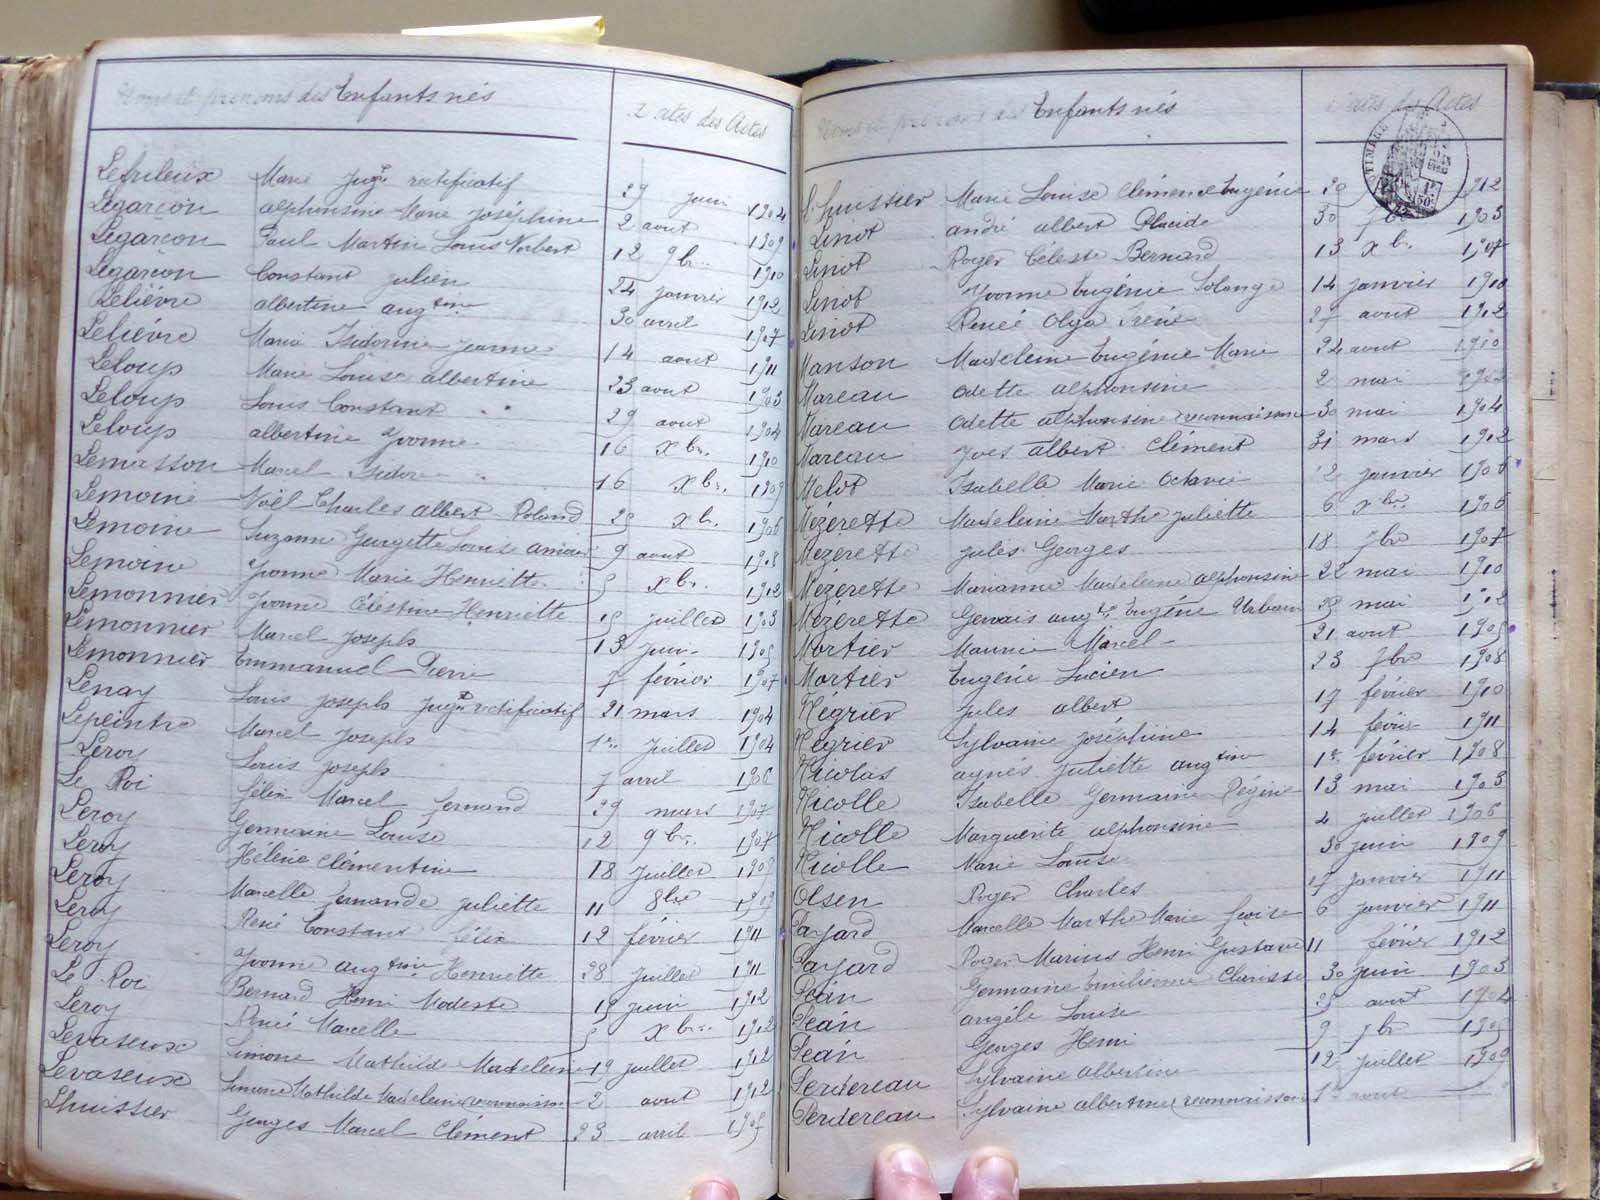 Noms et prénoms des Enfants nés Dates des Actes
Lefrileux Marie Jugt rectificatif 29 juin 1904
Legarçon alphonsine Marie Joséphine 2 aout 1909
Legarçon Paul Martin Louis Norbert 12 9br. 1910
Legarçon Constant julien 24 janvier 1912
Lelièvre albertine augtine 30 avril 1907
Lelièvre Maria Isidorine jeanne 14 aout 1911
Leloup Marie Louise albertine 23 aout 1903
Leloup Louis Constant 29 aout 1904
Leloup albertine Yvonne 16 xbr. 1910
Lemasson Marcel Isidore 16 xbr. 1909
Lemoine Noël Charles albert Roland 25 xbr. 1906
Lemoine Suzanne Georgette Louise 9 aout 1908
Lemoine Yvonne Marie Henriette 5 xbr. 1912
Lemonnier Yvonne Célestine Henriette 15 juillet 1903
Lemonnier Marcel joseph 13 juin 1905
Lemonnier Emmanuel Pierre 7 février 1907
Lenay Louis joseph Jugt rectificatif 21 mars 1904
Lepeintre Marcel joseph 1er juillet 1904
Leroy Louis joseph 7 avril 1906
Le Roi félix Marcel fernand 29 mars 1907
Leroy Germaine Louise 12 9br. 1907
Leroy Hélène Clémentine 18 juillet 1909
Leroy Marcelle fernande juliette 11 8bre 1909
Leroy René Constant félix 12 février 1911
Leroy Yvonne augtine Henriette 28 juillet 1911
Le Roi Bernard Henri Modeste 15 juin 1912
Leroy Renée Marcelle 5 xbr. 1912
Levaseux Simone Mathilde Madeleine 19 juillet 1912
Levaseux Simone Mathilde Madeleine reconnaissance 2 aout 1912
Lhuissier Georges Marcel Clément 23 avril 1905
Noms et prénoms des Enfants nés Dates des Actes
TIMBRE
Lhuissier Marie Louise Clémence Eugénie 20 1912
Linot andré albert Placide 30 1903
Linot Roger Céleste Bernard 13 xbr. 1907
Linot Yvonne Eugénie Solange 14 janvier 1910
Linot Renée Olga Irène 27 aout 1912
Manson Madeleine Eugénie Marie 24 aout 1910
Mareau Odette alphonsine 2 mai
Mareau Odette alphonsine reconnaissance 30 mai 1904
Mareau Yves albert Clément 31 mars 1912
Melot Isabelle Marie Octavie 12 janvier 1906
Mézerette Madeleine Marthe juliette 6 xbre 1905
Mézerette jules Georges 18 7bre 1907
Mézerette Marianne Madeleine alphonsine 22 mai 1910
Mézerette Gervais augte Eugène Urbain 25 mai 1912
Mortier Maurice Marcel 21 aout 1905
Mortier Eugène Lucien 23 7bre 1908
Négrier jules albert 17 février 1910
Négrier Sylvaine joséphine 14 février 1911
Nicolas agnés juliette augtine 1er février 1908
Nicolle Isabelle Germaine Régine 13 mai 1903
Nicolle Marguerite alphonsine 2 juillet 1906
Nicolle Marie Louise 30 juin 1909
Olsen Roger Charles 17 janvier 1911
Payard Marcelle Marthe Marie fçoise 6 janvier 1911
Payard Roger Marius Henri Gustave 11 février 1912
Péan Germaine Emilienne Clarisse 30 juin 1903
Péan angèle Louise 25 aout 1904
Péan Georges Henri 9 7br 1905
Perdereau Sylvaine albertine 12 juillet 1909
Perdereau Sylvaine albertine reconnaissance 1er aout